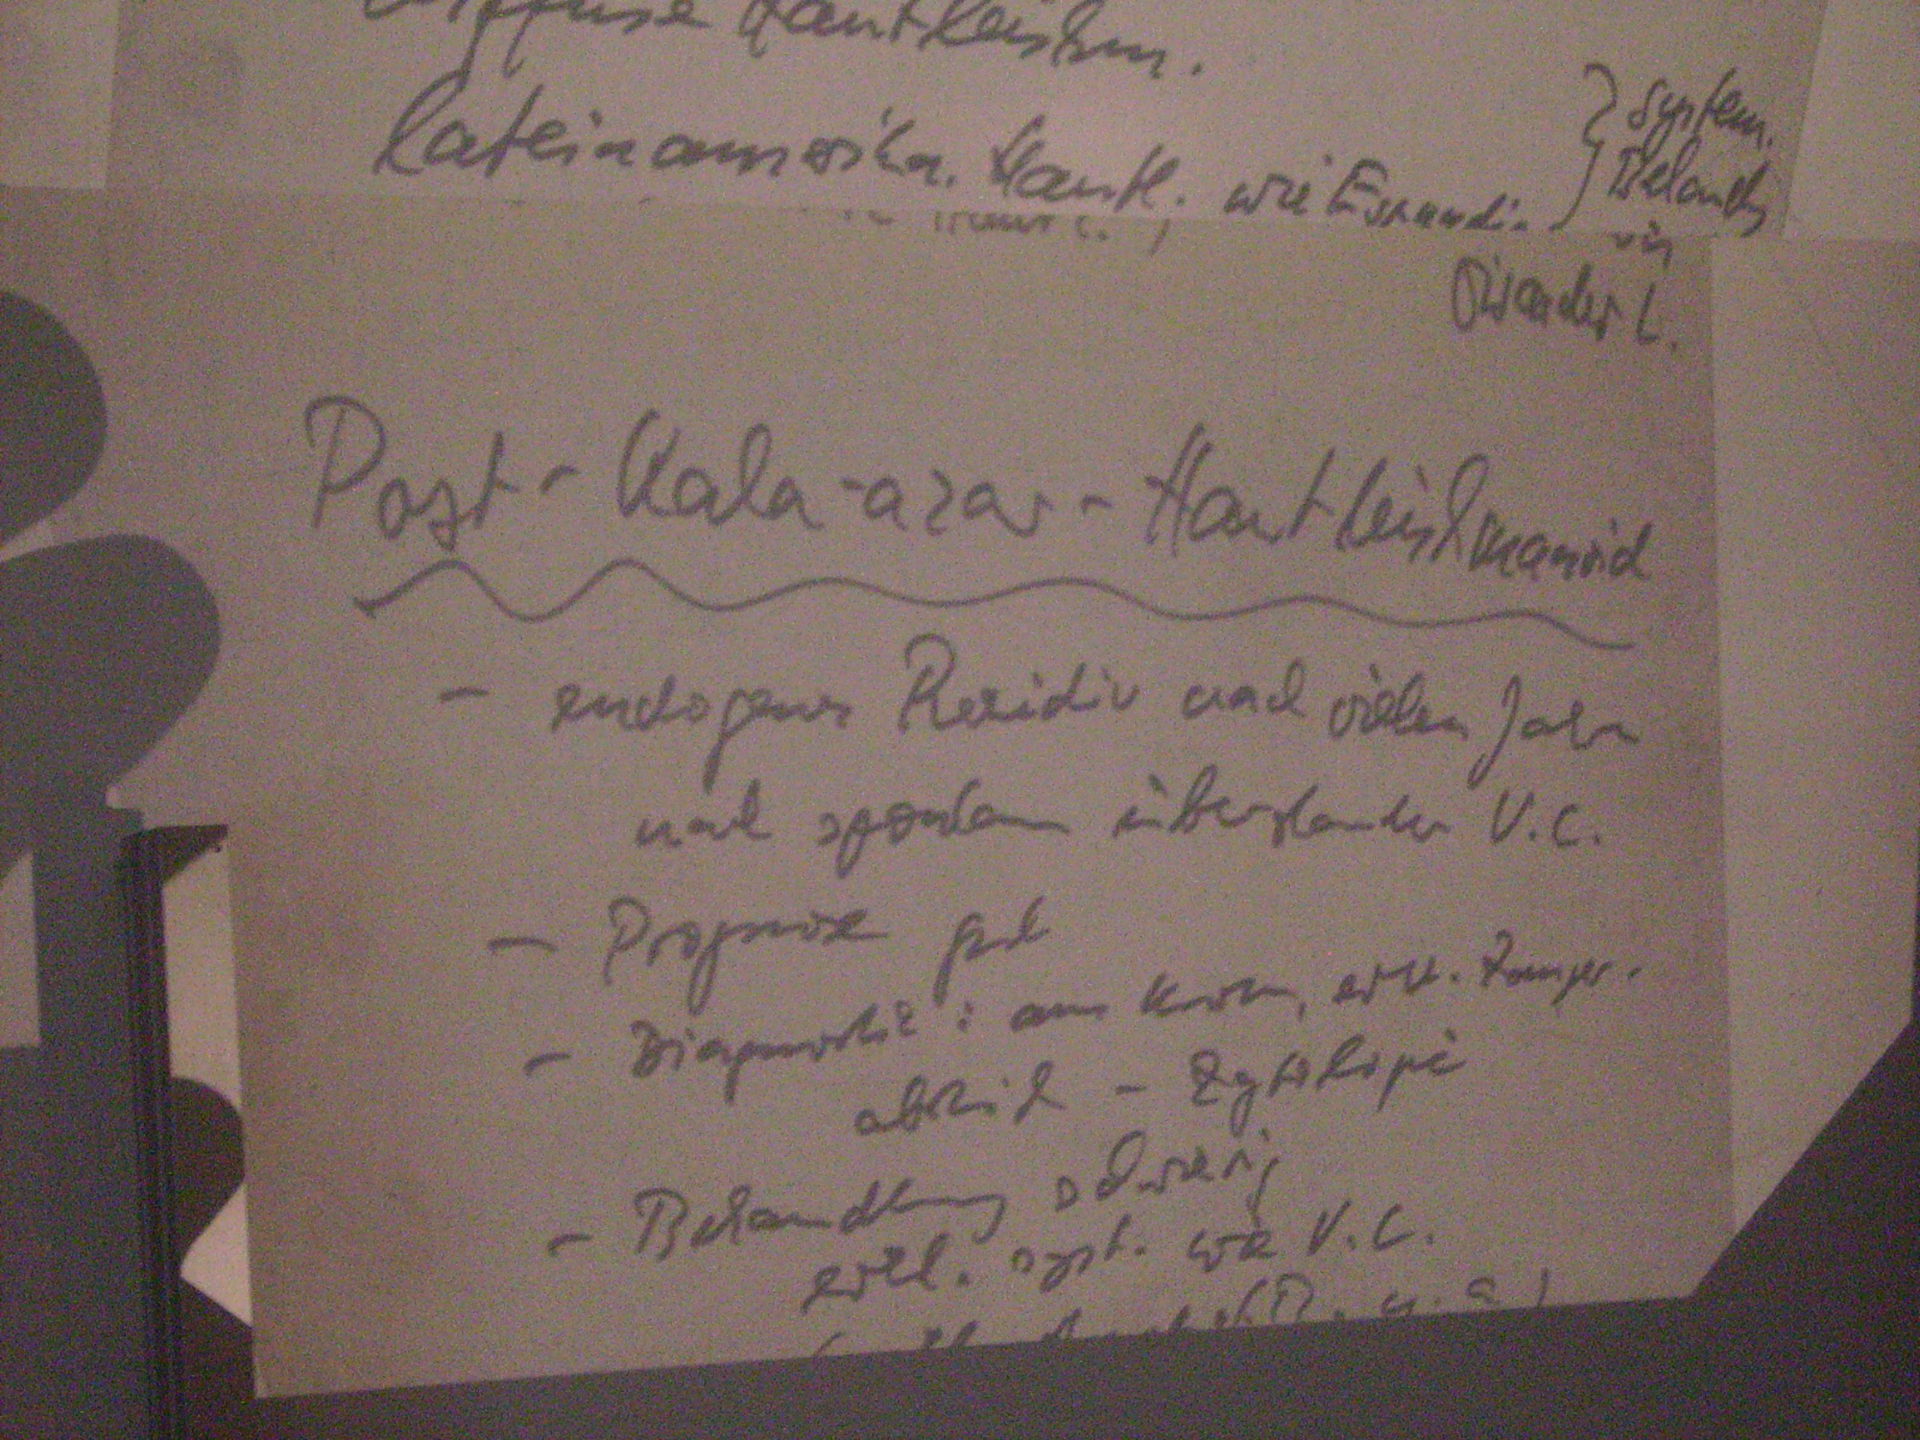 diffuse Hautleishm.
lateinamerika. Hautl. wie Espundi.
} system.
Behandlg
wie
Viscerale L.
Post-Kala-azar-Hautleishmanoid
- endogenes Rezidiv nach vielen Jahren
nach spontan überstandener V.L.
- Prognose gut
- Diagnostik: aus Knoten, evtl.
abstrich - Zytologie
- Behandlung schwierig
evtl. syst. wie V.L.